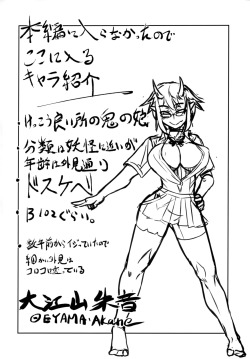 本編に入らなかったので
ここに入る
キャラ紹介
・けっこう良い所の鬼の娘
・分類は妖怪に近いが
年齢は外見通り
・ドスケベ
・B102ぐらい。
・数年前から
だっていたので
細かい外見は
コロコロ違っている
大江山朱音
OEYAMA・Akane